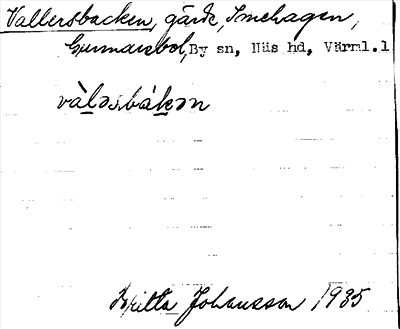 Vallersbacken, gärde, Smehagen,
Gunnarsbol, By sn, Näs hd, Värml.l
vàlǝsbákǝn
Britta Johansson 1935